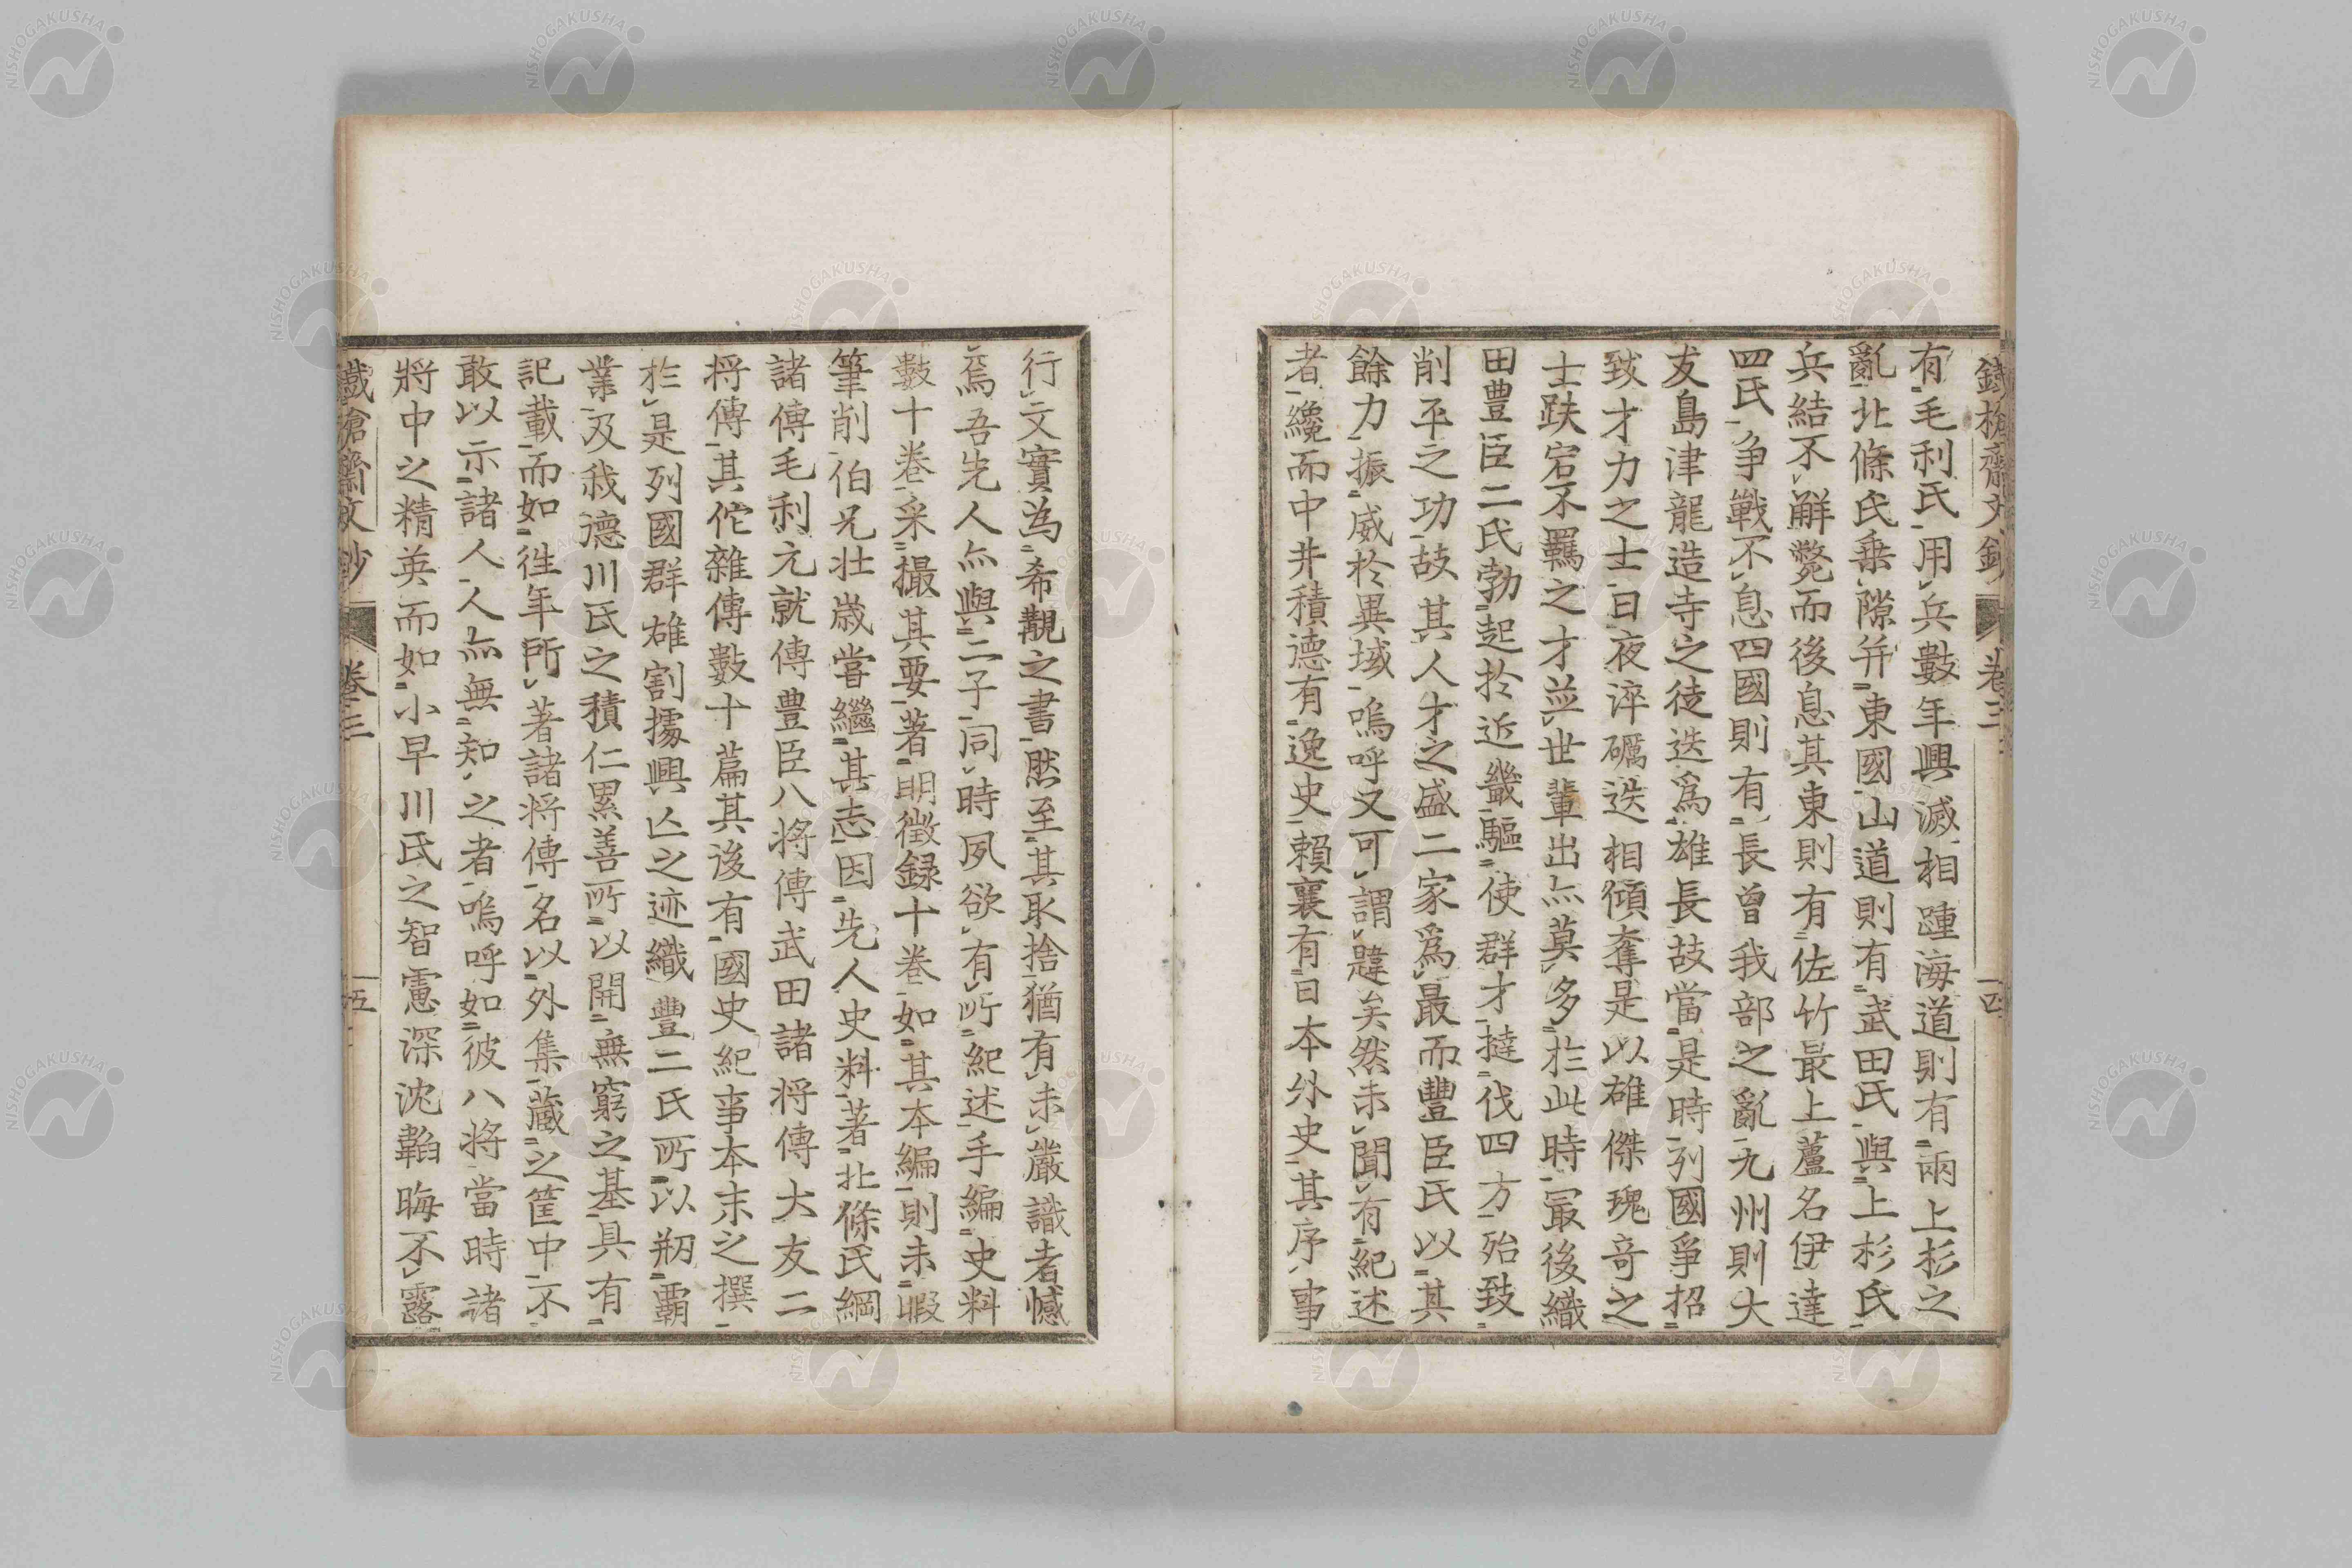 鐵槍齋文鈔 卷三 十四
有毛利氏用兵數年興滅相踵海道則有兩上杉之
亂北條氏乘隙并東國山道則有武田氏與上杉氏
兵結不解斃而後息其東則有佐竹最上蘆名伊達
四氏爭戰不息四國則有長曾我部之亂九州則大
友島津龍造寺之徒迭爲雄長故當是時列國爭招
致才力之士日夜淬礪迭相傾奪是以雄傑瑰奇之
士趺宕不羈之才並世輩出亦莫多於此時冣後織
田豊臣二氏勃起於近畿驅使群才撻伐四方殆致
削平之功故其人才之盛二家爲最而豐臣氏以其
餘力振威於異域嗚呼文可謂韙矣然未聞有紀述
者纔而中井積德有逸史賴襄有日本外史其序事
行文實為希覯之書然至其取捨猶有未嚴識者憾
焉吾先人亦與二子同時夙欲有所紀述手編史料
數十卷采撮其要著明徵録十卷如其本編則未暇
筆削伯兄壮歲嘗繼其志因先人史料著北條氏綱
諸傳毛利元就傳豊臣八將傳武田諸将傳大友二
将傳其佗雜傳數十篇其後有國史紀事本末之撰
於是列國群雄割據興亾之迹織豐二氏所以刱霸
業及我德川氏之積仁累善所以開無窮之基具有
記載而如徃年所著諸将傳名以外集藏之筐中不
敢以示諸人人亦無知之者嗚呼如彼八将當時諸
將中之精英而如小早川氏之智慮深沈韜晦不露
鐵槍齋文鈔 卷三 十五